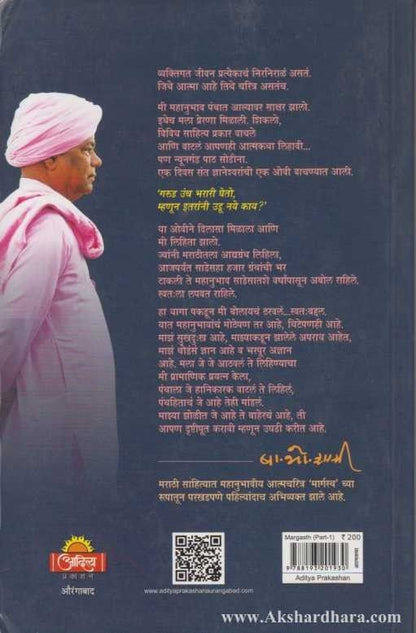 व्यक्तिगत जीवन प्रत्येकाचं निरनिराळं असतं.
जिथे आत्मा आहे तिथे चरित्र असतंच.
मी महानुभाव पंथात आल्यावर साक्षर झालो.
इथेच मला प्रेरणा मिळाली. शिकलो,
विविध साहित्य प्रकार वाचले
आणि वाटलं आपणही आत्मकथा लिहावी...
पण न्यूनगंड पाठ सोडीना.
एक दिवस संत ज्ञानेश्वरांची एक ओवी वाचण्यात आली.
'गरुड उंच भरारी घेतो,
म्हणून इतरांनी उडू नये काय?'
या ओवीने दिलासा मिळाला आणि
मी लिहिता झालो.
ज्यांनी मराठीतला आद्यग्रंथ लिहिला,
आजपर्यंत साडेसहा हजार ग्रंथांची भर
टाकली ते महानुभाव साडेसातशे वर्षांपासून अबोल राहिले.
स्वतःला लपवत राहिले.
हा धागा पकडून मी बोलायचं ठरवलं...स्वतःबद्दल.
यात महानुभावांचं मोठेपण तर आहे, थिटेपणही आहे.
माझं सुखदुःख आहे, माझ्याकडून झालेले अपराध आहेत,
माझं थोडंसं ज्ञान आहे व भरपूर अज्ञान
आहे. मला जे जे आठवलं ते लिहिण्याचा
मी प्रामाणिक प्रयत्न केला,
पंथाला जे हानिकारक वाटलं ते लिहिलं,
पंथहिताचं जे आहे तेही मांडलं.
माझ्या झोळीत जे आहे ते बाहेरचं आहे, ती
आपण दृष्टीपूत करावी म्हणून उघडी करीत आहे.
बा.भो.शास्त्री
मराठी साहित्यात महानुभावीय आत्मचरित्र 'मार्गस्थ' च्या
रूपातून परखडपणे पहिल्यांदाच अभिव्यक्त झाले आहे.
आदित्य
प्रकाशन
औरंगाबाद
www.adityaprakashanaurangabad.com
Margasth (Part-1) ₹ 200
9 788193 201930
Aditya Prakashan
www.Akshardhara.com